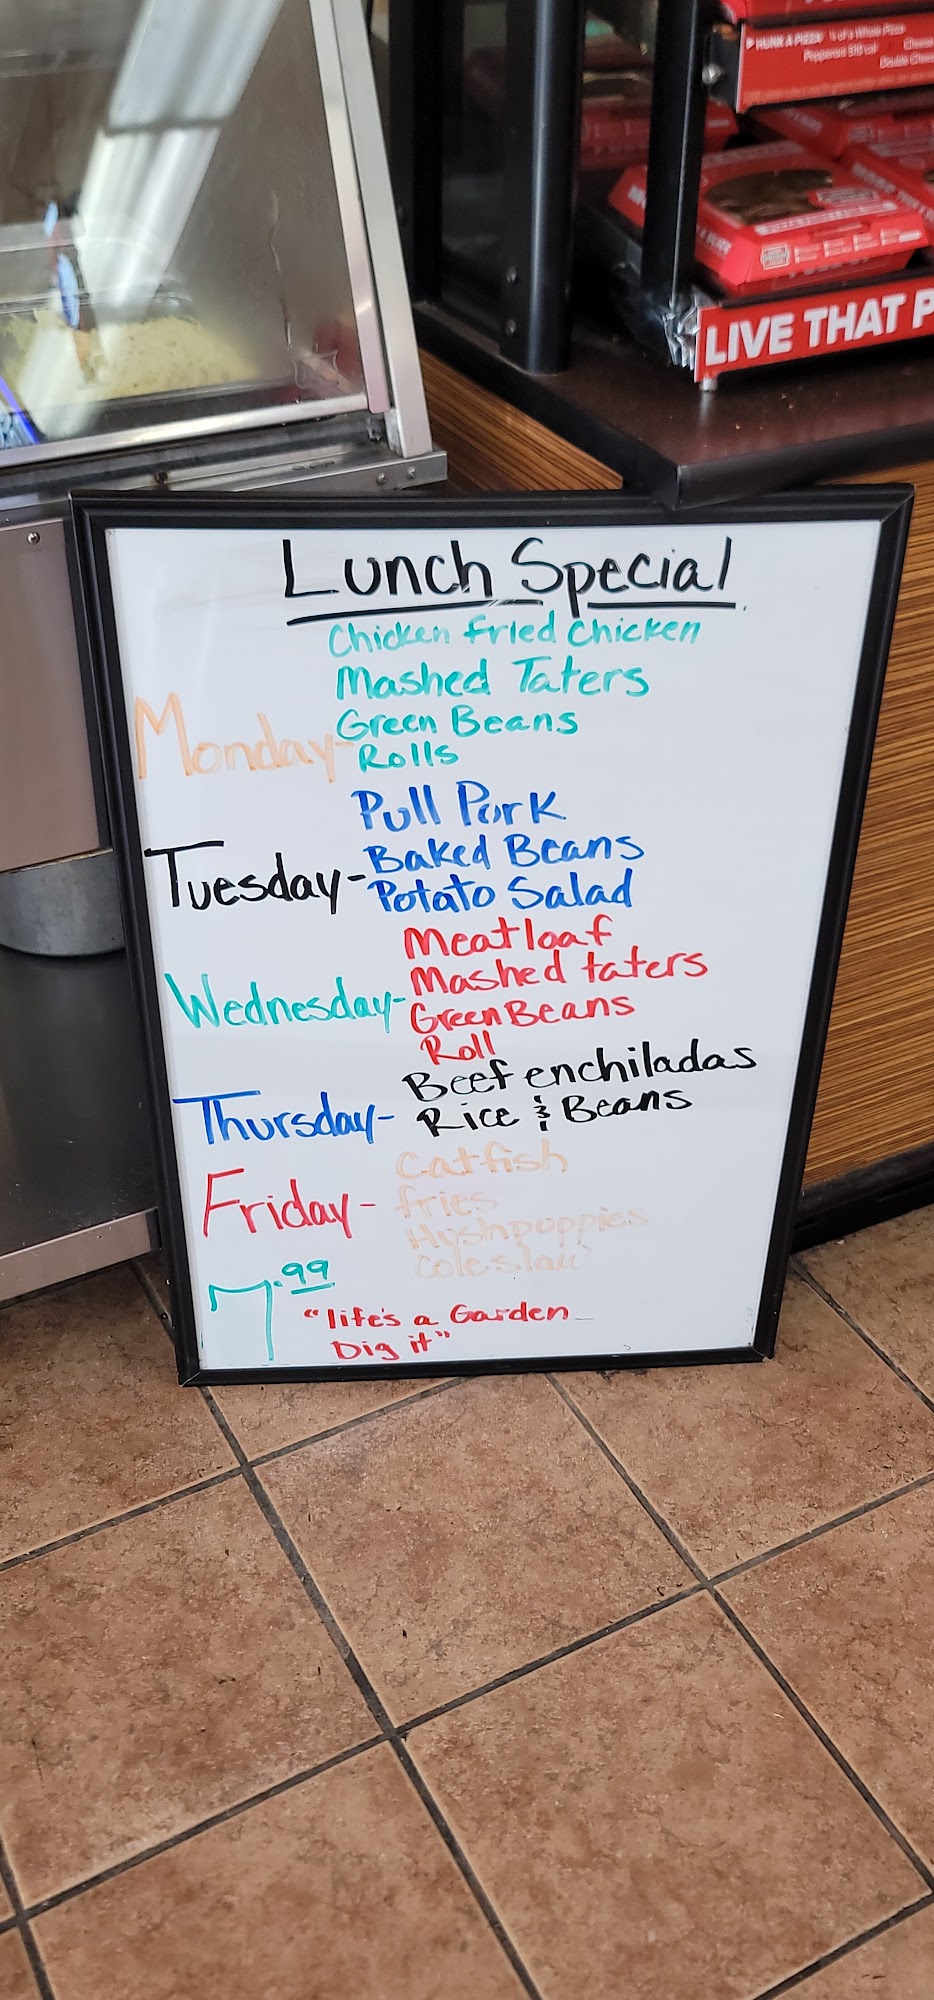 HUNK A PIZZA
LIVE THAT P
Lunch Special
Chicken fried chicken
Mashed Taters
Monday- Green Beans
Rolls
Pull Pork
Tuesday- Baked Beans
Potato Salad
Meatloaf
Mashed taters
Wednesday- Green Beans
Roll
Beef enchiladas
Thursday- Rice & Beans
Catfish
Friday- fries
Hushpuppies
Coleslaw
7.99
"life's a Garden
Dig it"